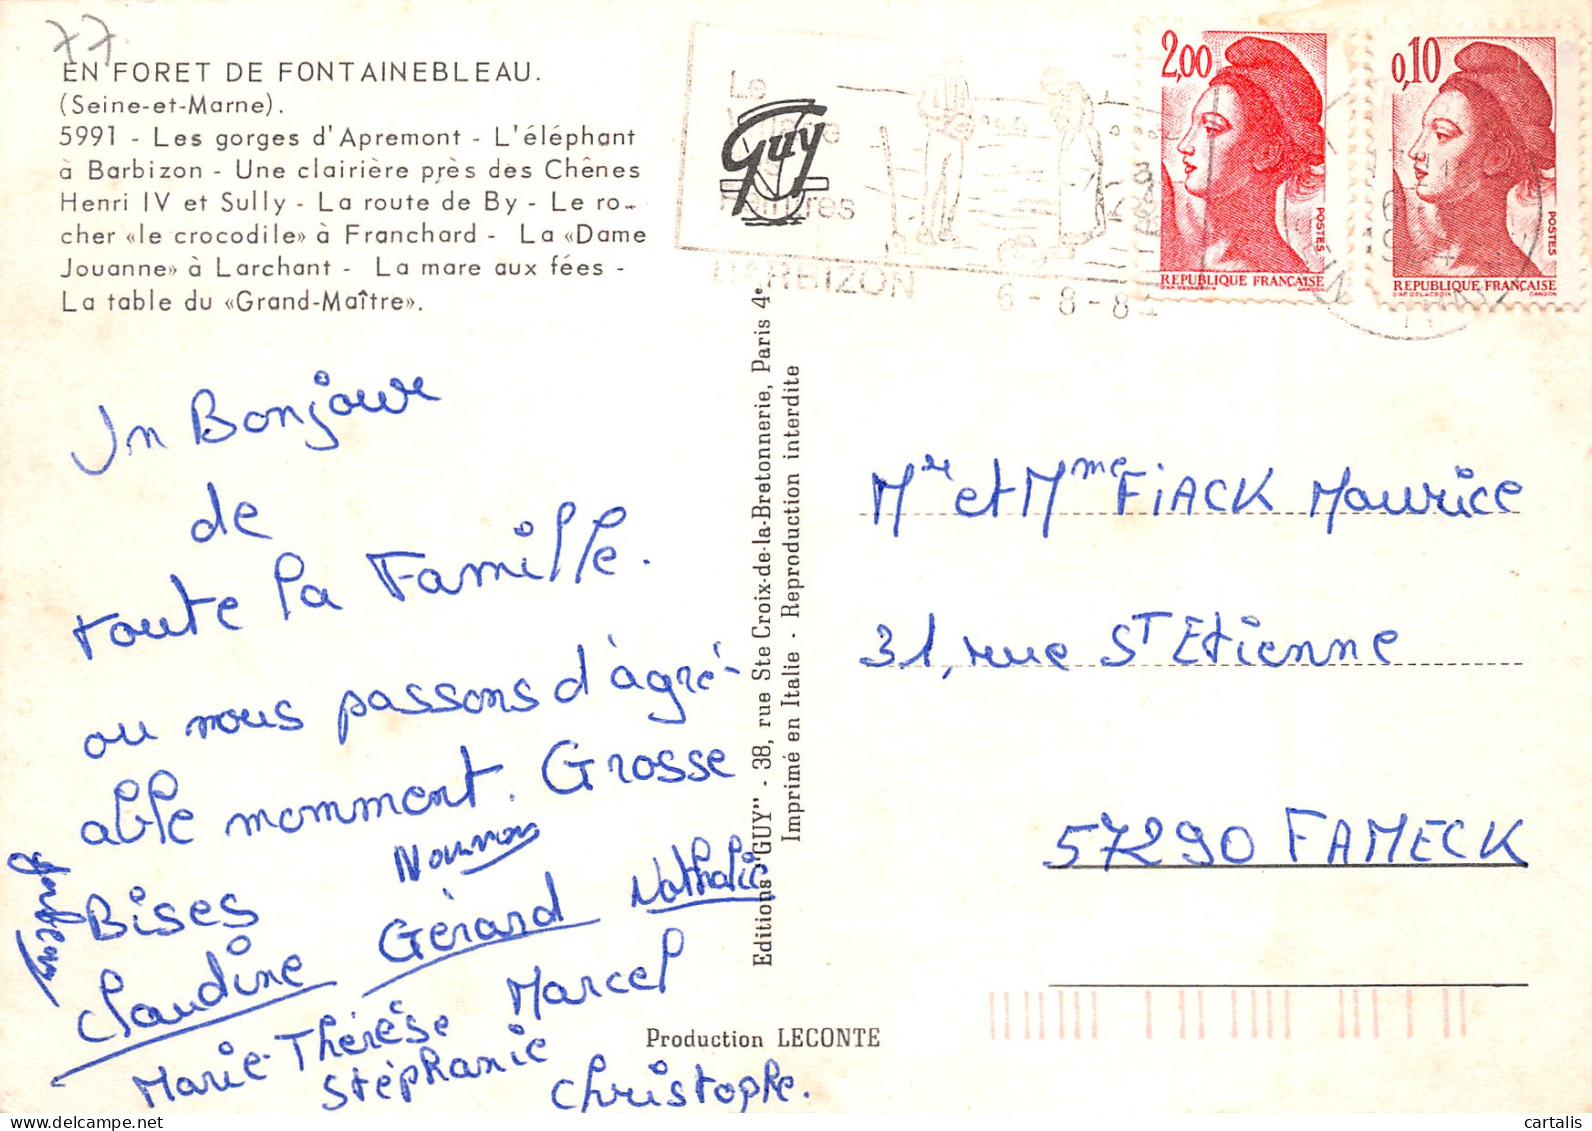 77
EN FORET DE FONTAINEBLEAU.
(Seine-et-Marne).
5991 - Les gorges d'Apremont - L'éléphant
à Barbizon - Une clairière près des Chênes
Henri IV et Sully - La route de By - Le ro-
cher «le crocodile» à Franchard - La «Dame
Jouanne» à Larchant - La mare aux fées -
La table du «Grand-Maître».
Le
Peintres
Guy
BARBIZON
6-8-84
2,00
POSTES
REPUBLIQUE FRANÇAISE
0,10
POSTES
REPUBLIQUE FRANÇAISE
Un Bonjour
de
toute la Famille.
ou nous passons d'agré-
able momment. Grosse
Bises
Gérard Nathalie
Claudine
Marcel
Marie-Thérèse
Stéphanie
Christophe.
Editions "GUY" - 38, rue Ste Croix-de-la-Bretonnerie, Paris 4e
Imprimé en Italie - Reproduction interdite
Production LECONTE
Mr et Mme FIACK Maurice
31, rue ST Etienne
57290 FAMECK
cartalis